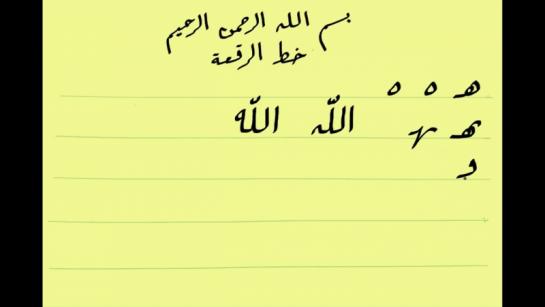 بسم الله الرحمن الرحيم
خط الرقعة
هـ ه ه
ـهـ ـه الله الله
و